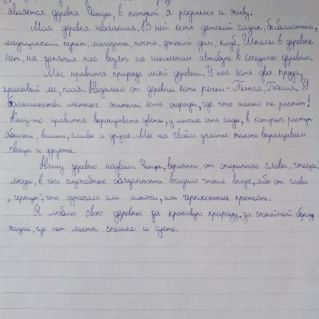 является деревня Чтецы, в которой я родилась и живу.
Моя деревня небольшая. В ней есть детский садик, библиотека,
медицинский пункт, магазины, почта, детский дом, клуб. Школы в деревне
нет, на занятия нас возят на школьном автобусе в соседнюю деревню.
Мне нравится природа моей деревни. У нас есть два пруда,
красивый лес, поля. Недалеко от деревни есть речки
большинства местных жителей есть огороды, где что только не растёт!
Кому-то нравится выращивать цветы, у многих есть сады, в которых растут
яблони, вишни, сливы и другое. Мы на своём участке также выращиваем
овощи и фрукты.
Нашу деревню назвали Чтецы, вероятно, от старинного слова
люди, в чьи служебные обязанности входило чтение вслух, либо от слова
что означало или монахи, или крестьяне.
Я люблю свою деревню за красивую природу, за спокойный образ
жизни, где нет места спешке и суете.